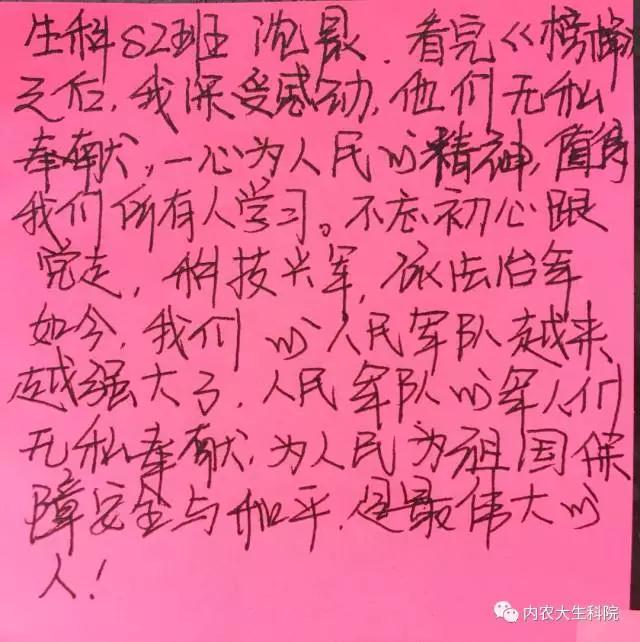 生科82班 沈晸. 看完《榜样》
之后,我深受感动,他们无私
奉献,一心为人民的精神,值得
我们所有人学习。不忘初心跟
党走,科技兴军,依法治军
如今,我们的人民军队越来
越强大了,人民军队的军人们
无私奉献,为人民为祖国保
障安全与和平,是最伟大的
人!
内农大生科院